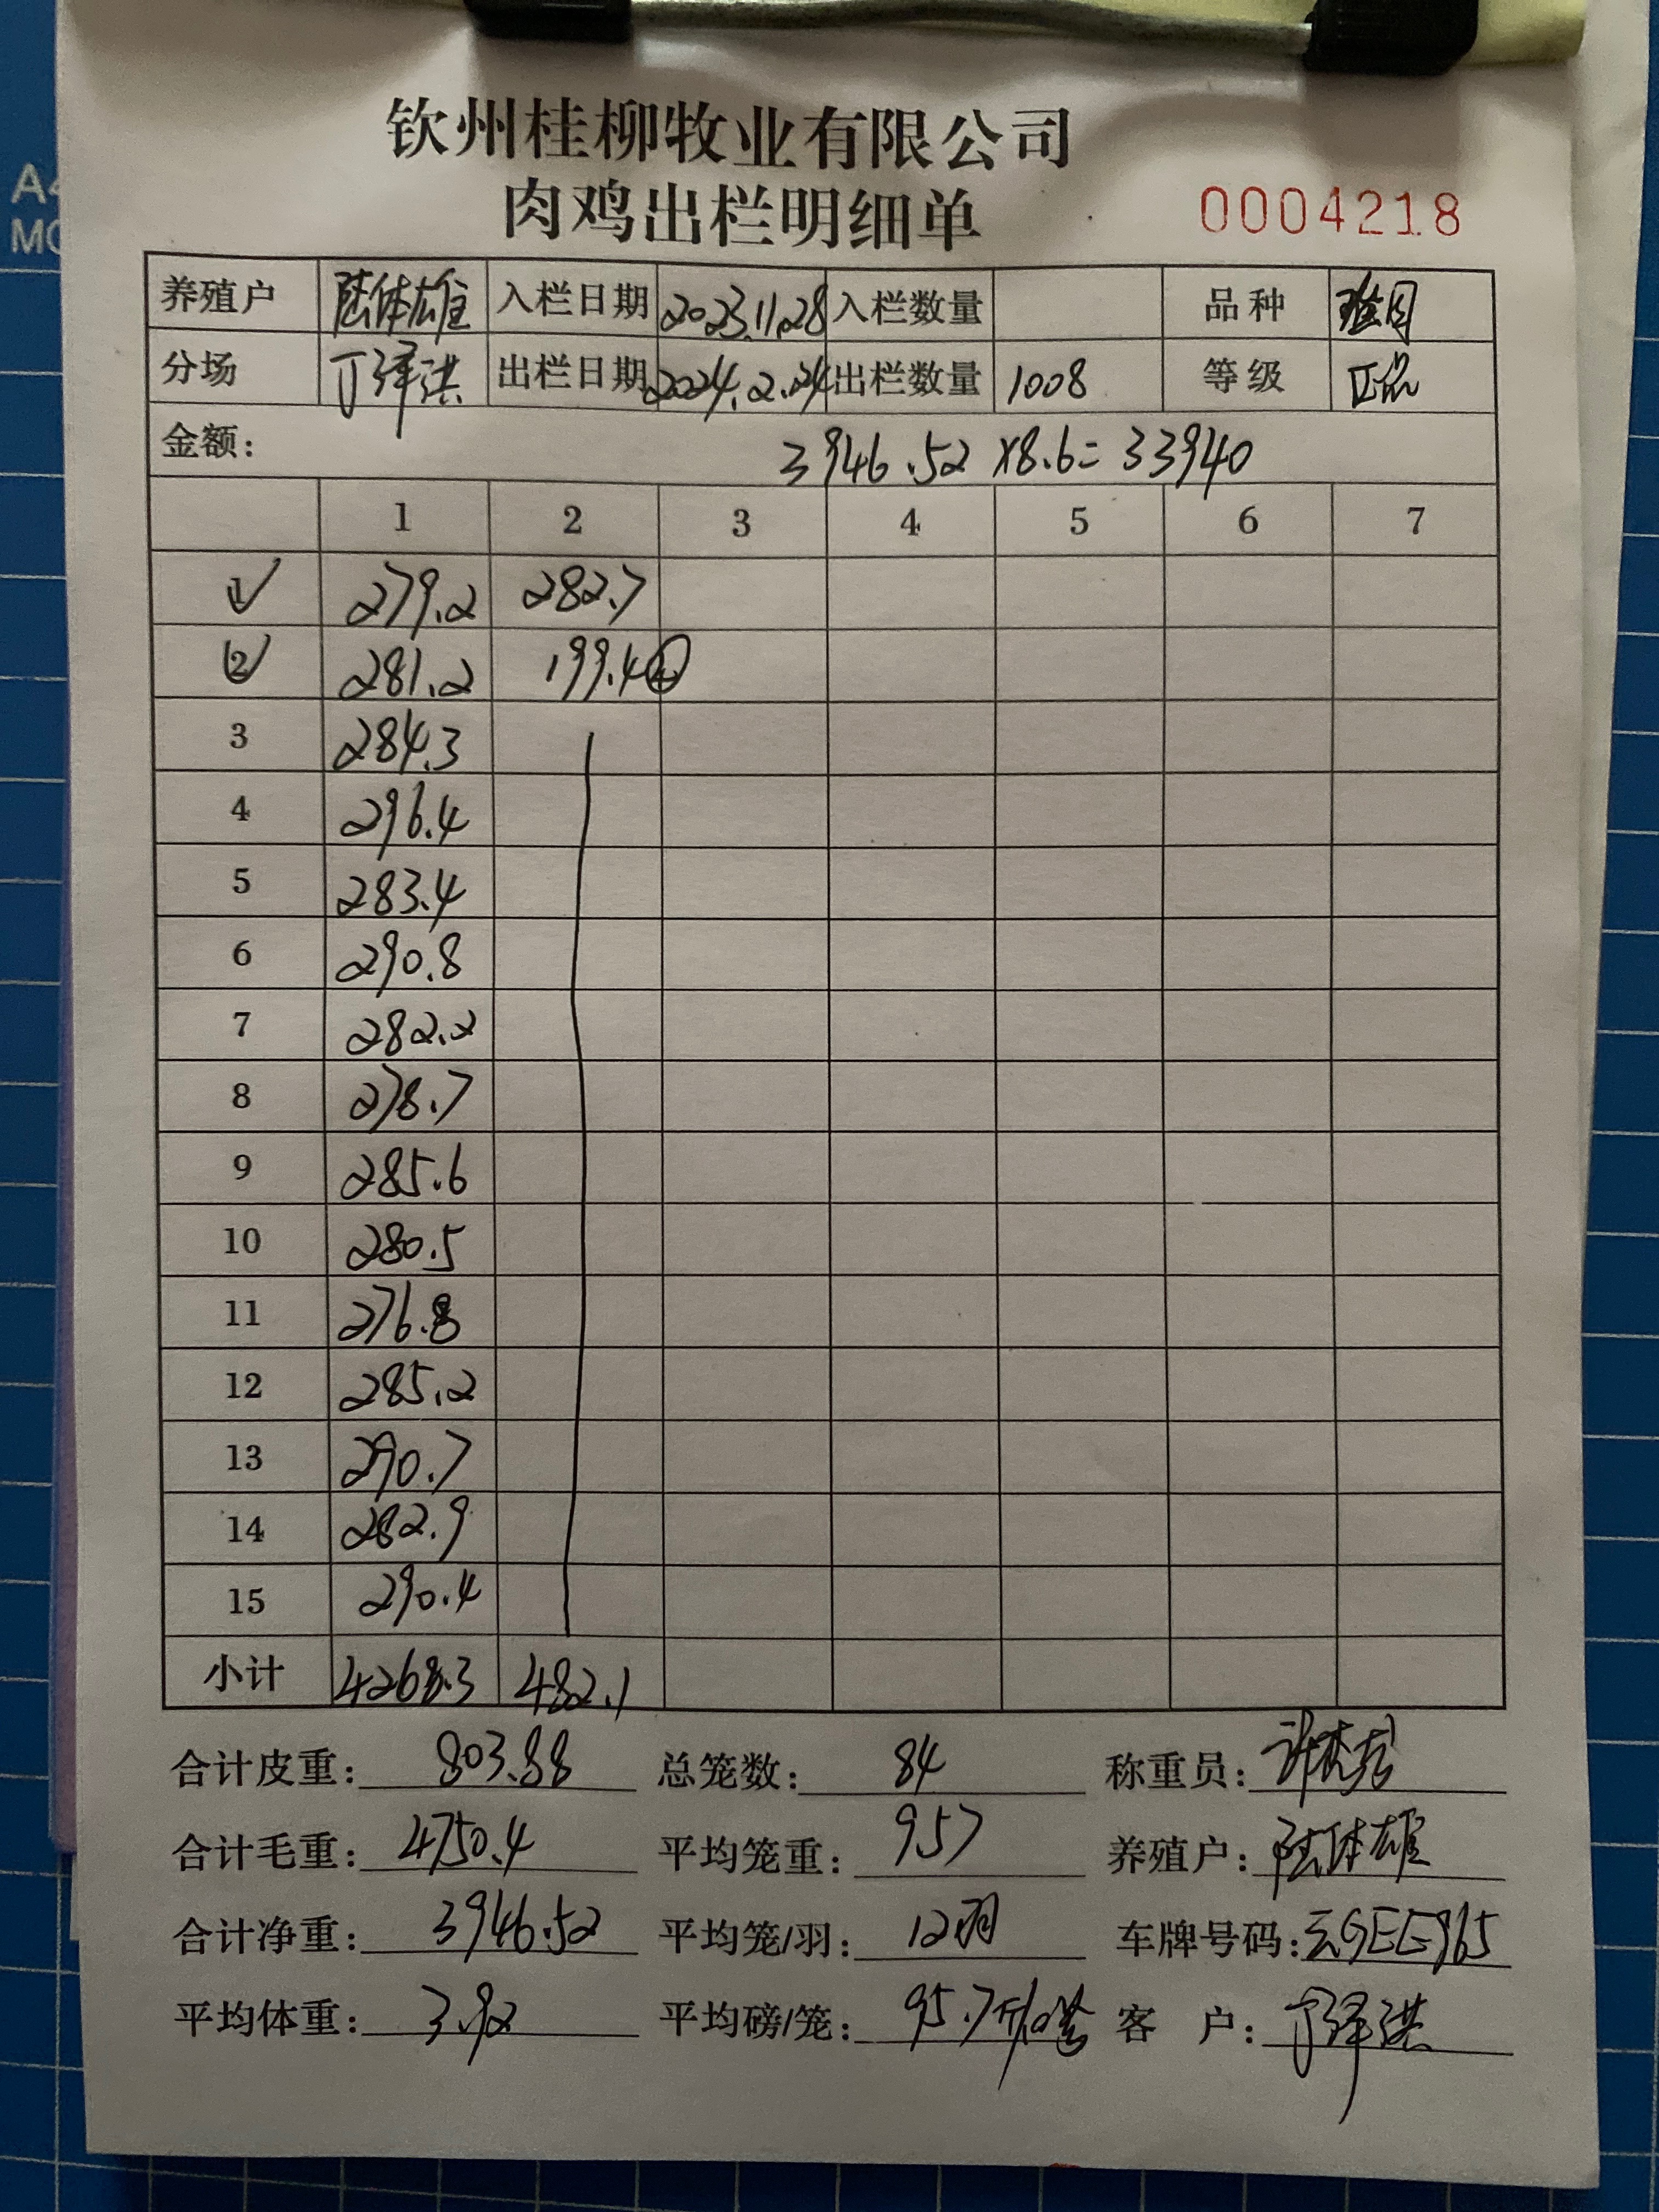 钦州桂柳牧业有限公司
肉鸡出栏明细单 0004218
养殖户 陆体雄 入栏日期 2023.11.28 入栏数量 品种
分场 丁泽洪 出栏日期 2024.2.24 出栏数量 1008 等级 正品
金额: 3946.52 ×8.6= 33940
1 2 3 4 5 6 7
1 279.2 282.7
2 281.2 199.4 ④
3 284.3
4 296.4
5 283.4
6 290.8
7 282.2
8 278.7
9 285.6
10 280.5
11 276.8
12 285.2
13 290.7
14 282.9
15 290.4
小计 4268.3 482.1
合计皮重: 803.88 总笼数: 84 称重员:
合计毛重: 4750.4 平均笼重: 957 养殖户: 陆体雄
合计净重: 3946.52 平均笼/羽: 12羽 车牌号码: 云GEE965
平均体重: 3.92 平均磅/笼: 95.7 客 户: 丁泽洪
A4